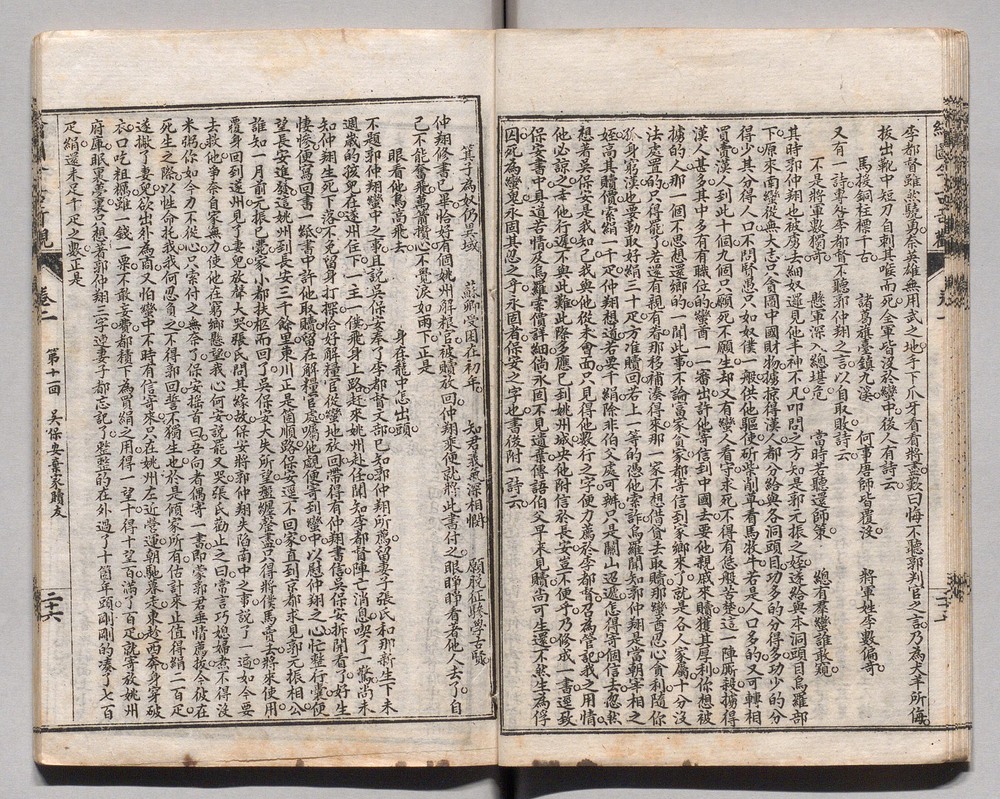 李都督雖然驍勇奈英雄無用武之地手下爪牙看看將盡歎曰悔不聽郭判官之言乃為犬羊所侮
拔出靴中短刀自刺其喉而死全軍皆沒於蠻中後人有詩云
馬援銅柱標千古 諸葛旗臺鎮九溪 何事唐師皆覆沒 將軍姓李數偏奇
又有一詩專咎李都督不聽郭仲翔之言以自取敗詩云
不是將軍數獨奇 懸軍深入總堪危 當時若聽還師策 總有羣蠻誰敢窺
其時郭仲翔也被虜去細奴邏見他丰神不凡叩問之方知是郭元振之姪遂給與本洞頭目烏羅部
下原來南蠻從無大志只貪圖中國財物擄掠得漢人都分給與各洞頭目功多的分得多功少的分
得少其分得人口不問賢愚只如奴僕一般供他驅使斫柴削草看馬牧牛若是人口多的又可轉相
買賣漢人到此十個九個只願死不願生却又有蠻人看守求死不得有恁般苦楚這一陣廝殺擄得
漢人甚多其中多有有職位的蠻酋一一審出許他寄信到中國去要他親戚來贖獲其厚利你想被
擄的人那一個不思想還鄉的一聞此事不論富家貧家都寄信到家鄉來了就是各人家屬十分沒
法處置的只得罷了若還有親有眷那移補湊得來那一家不想借貸去取贖那蠻酋忍心貪利隨你
孤身窮漢也要勒取好絹三十疋方准贖回若上一等的憑他索詐烏羅聞知郭仲翔是當朝宰相之
姪高其贖價索絹一千疋仲翔想道若要千絹除非伯父處可辦只是關山迢遞怎得寄個信去忽然
想著吳保安是我知己我與他從未會面只見得他數行之字便力薦於李都督召為管記我之用情
他必諒之幸他行遲不與此難此際多應已到姚州城央他附信於長安豈不便乎乃修成一書逕致
保安書中具道苦情及烏羅索價詳細倘永固不見遺棄傳語伯父早來見贖尚可生還不然生為俘
囚死為蠻鬼永固其忍之乎永固者保安之字也書後附一詩云
箕子為奴仍異域 蘇卿受困在初年 知君義氣深相憫 願脫征驂學古賢
仲翔修書已畢恰好有個姚州解糧官被贖放回仲翔乘便就將此書付之眼睜睜看著他人去了自
己不能奮飛萬箭攢心不覺淚如雨下正是
眼看他鳥高飛去 身在籠中怎出頭
不題郭仲翔蠻中之事且說吳保安奉了李都督文帖已知郭仲翔所薦留妻子張氏和那新生下未
週歲的孩兒在遂州住下一主一僕飛身上路赶來姚州赴任聞知李都督陣亡消息喫了一驚尚未
知仲翔生死下落不免留身打探恰好解糧官從蠻地放回帶得有仲翔書信吳保安拆開看了好生
悽慘便寫回書一紙書中許他取贖留在解糧官處囑他覷便寄到蠻中以慰仲翔之心忙整行囊便
望長安進發這姚州到長安三千餘里東川正是箇順路保安逕不回家直到京都求見郭元振相公
誰知一月前元振已薨家小都扶柩而回了吳保安大失所望盤纏罄盡只得將僕馬賣去將來使用
覆身回到遂州見了妻兒放聲大哭張氏問其緣故保安將郭仲翔失陷南中之事說了一遍如今要
去救他爭奈自家無力使他在窮鄉懸望我心何安說罷又哭張氏勸止之曰常言巧媳婦煮不得沒
米粥你如今力不從心只索付之無奈了保安搖首曰吾向者偶寄一書即蒙郭君垂情薦拔今彼在
死生之際以性命托我我何忍負之不得郭回誓不獨生也於是傾家所有估計來止值得絹二百疋
遂撇了妻兒欲出外為商又怕蠻中不時有信寄來只在姚州左近營運朝馳暮走東趁西奔身穿破
衣口吃粗糲雖一錢一粟不敢妄費都積下為買絹之用得一望十得十望百滿了百疋就寄放姚州
府庫眠裏夢裏只想著郭仲翔三字連妻子都忘記了整整的在外過了十箇年頭剛剛的湊了七百
疋絹還未足千疋之數正是
卷二 第十一回 吳保安棄家贖友 二十六